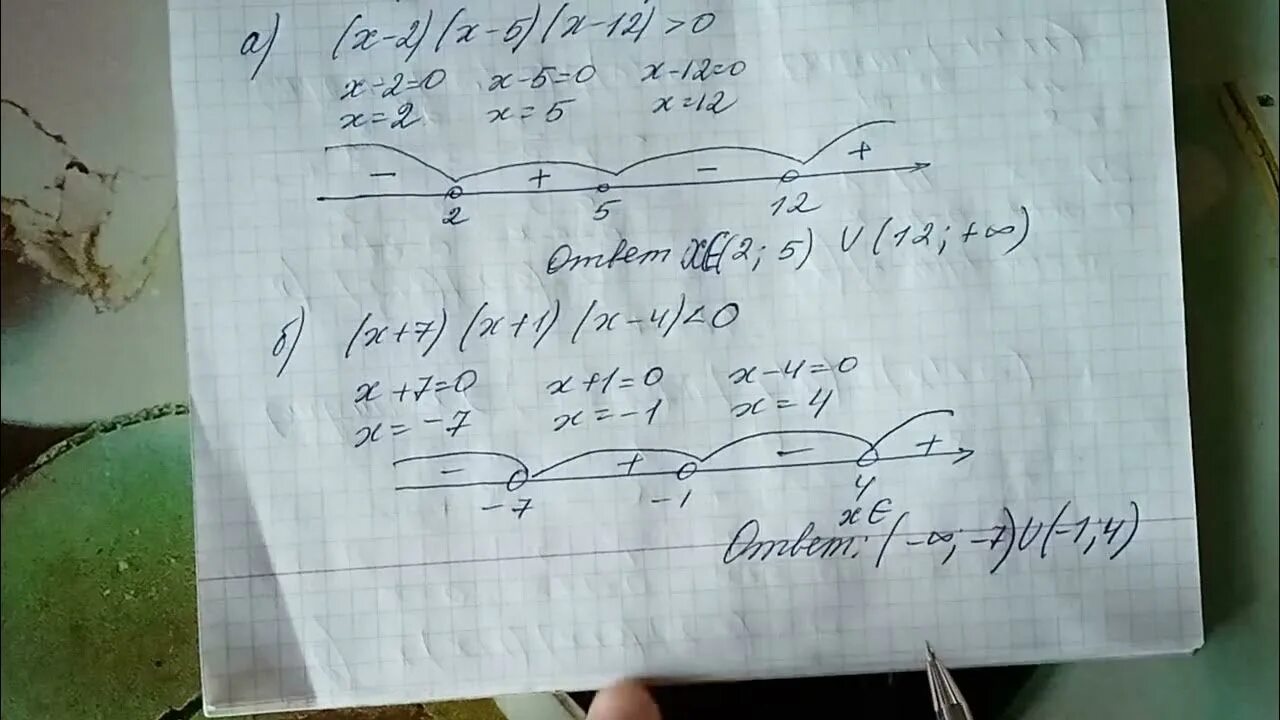 а) (x-2)(x-5)(x-12)>0
x-2=0 x-5=0 x-12=0
x=2 x=5 x=12
- + - +
2 5 12
Ответ x∈(2; 5) ∪ (12; +∞)
б) (x+7)(x+1)(x-4)<0
x+7=0 x+1=0 x-4=0
x=-7 x=-1 x=4
- + - +
-7 -1 4
x∈
Ответ: (-∞; -7)∪(-1; 4)